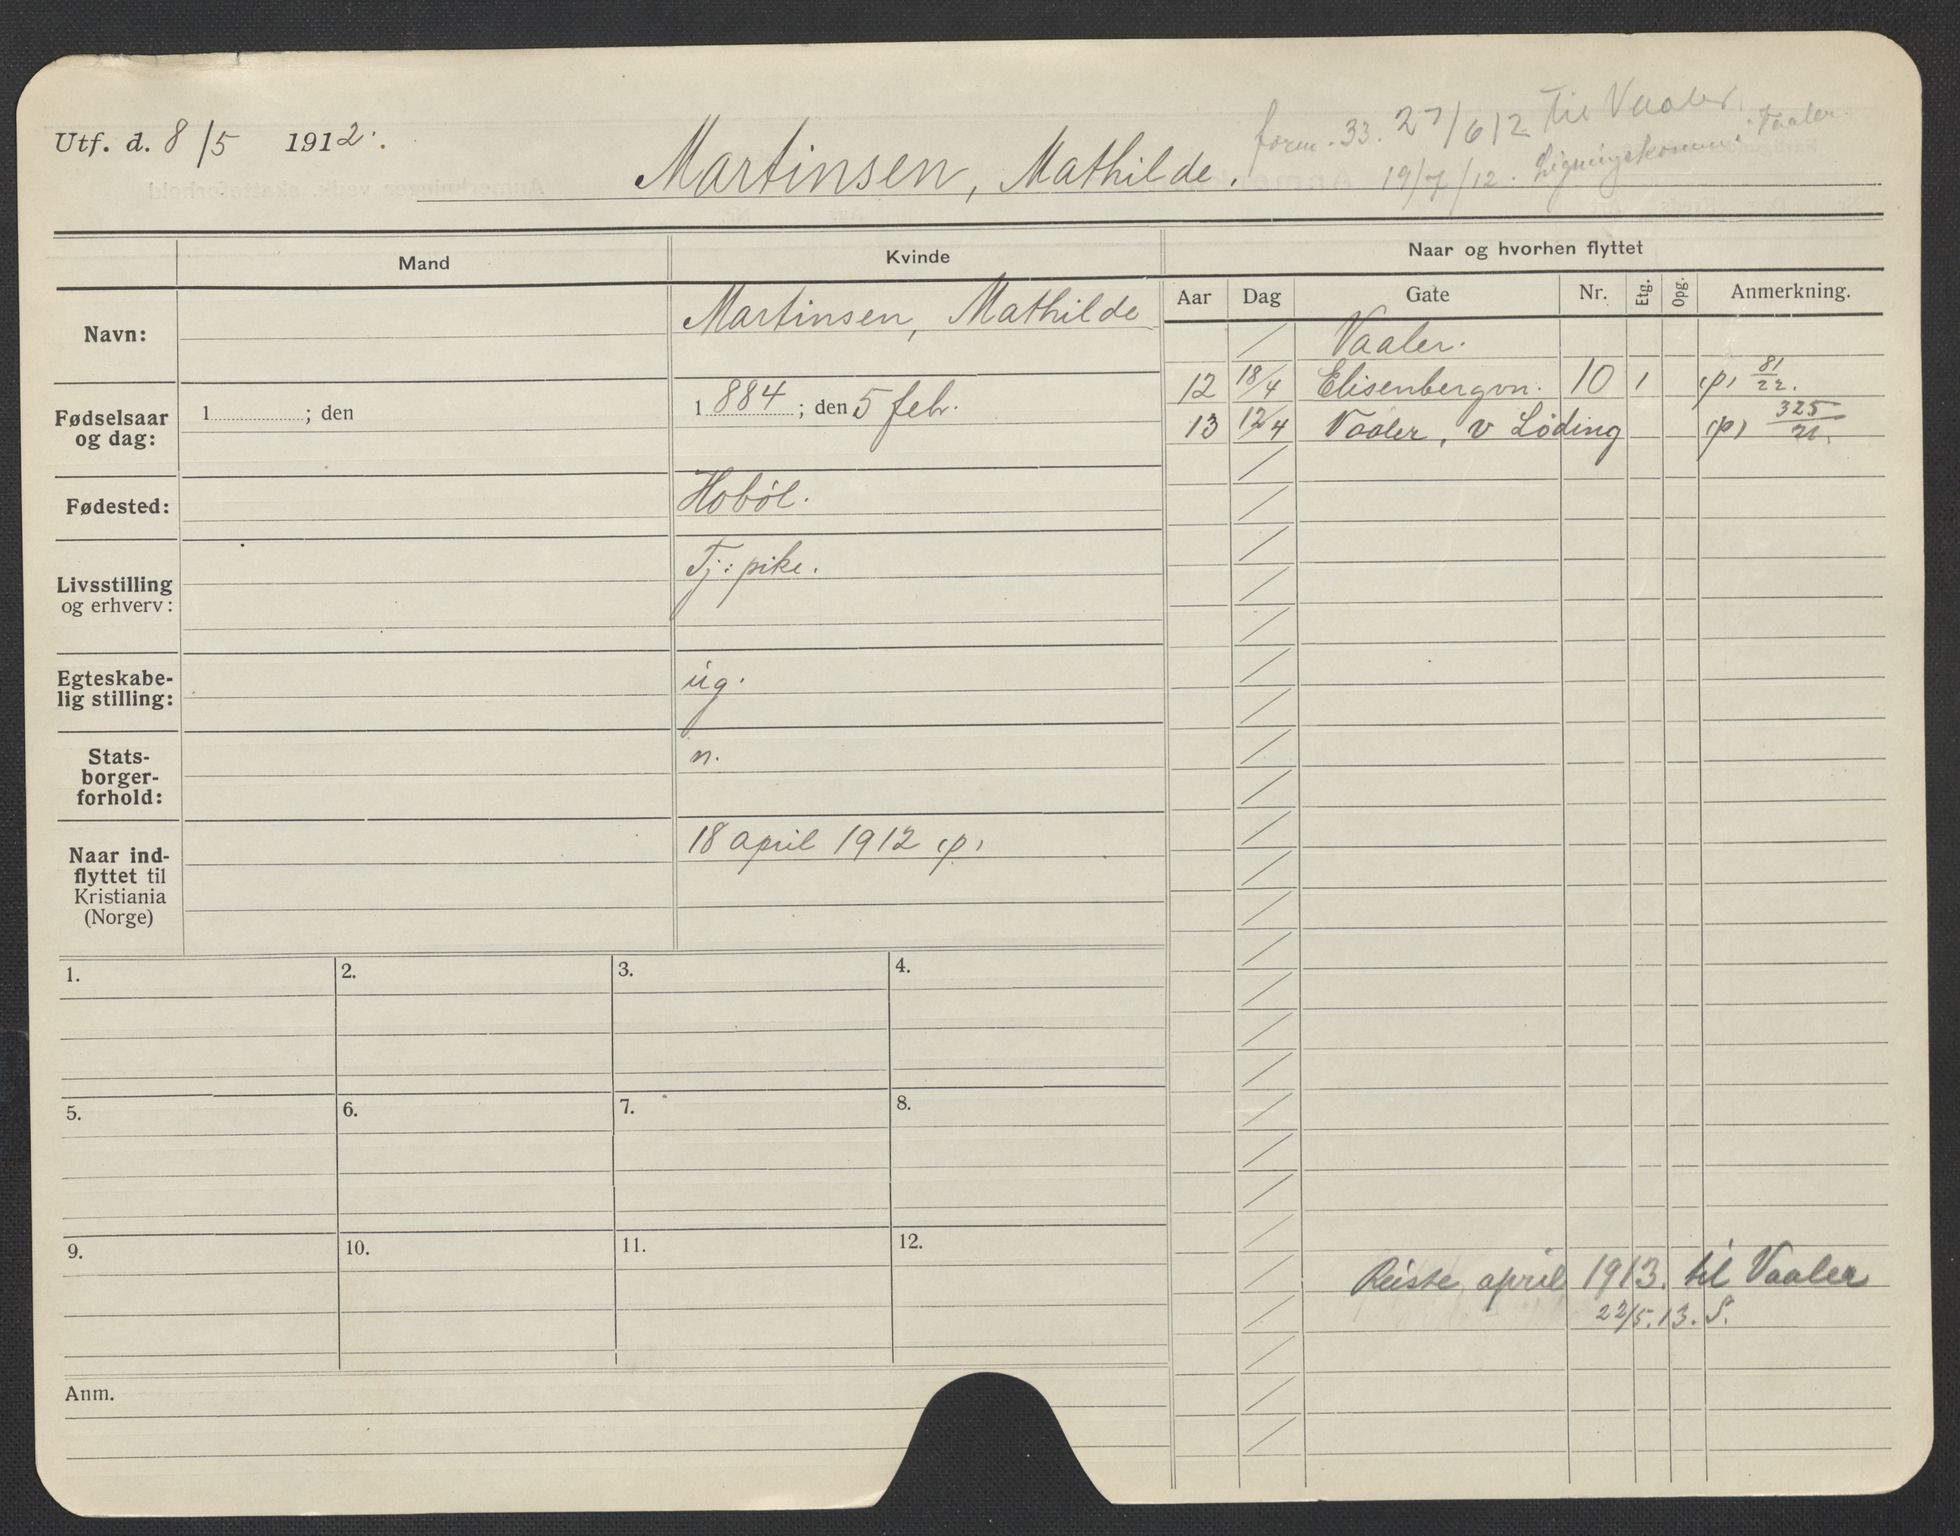 Utf. d. 8/5 1912.
Martinsen, Mathilde.
form. 33. 27/6 12 Til Vaaler.
19/7/12. Vaaler.
Mand
Kvinde
Naar og hvorhen flyttet
Aar Dag Gate Nr. Etg. Opg. Anmerkning.
Navn:
Martinsen, Mathilde
Fødselsaar
og dag:
1 ; den
1884; den 5 febr.
Fødested:
Hobøl.
Livsstilling
og erhverv:
Tj: pike.
Egteskabe-
lig stilling:
ug.
Stats-
borger-
forhold:
n.
Naar ind-
flyttet til
Kristiania
(Norge)
18 april 1912 (p)
Vaaler.
12 18/4 Elisenbergvn. 10 1 (p) 81/22.
13 12/4 Vaaler, v Løding (p) 325/21.
Reiste april 1913. til Vaaler
22/5.13. S.
1.
2.
3.
4.
5.
6.
7.
8.
9.
10.
11.
12.
Anm.